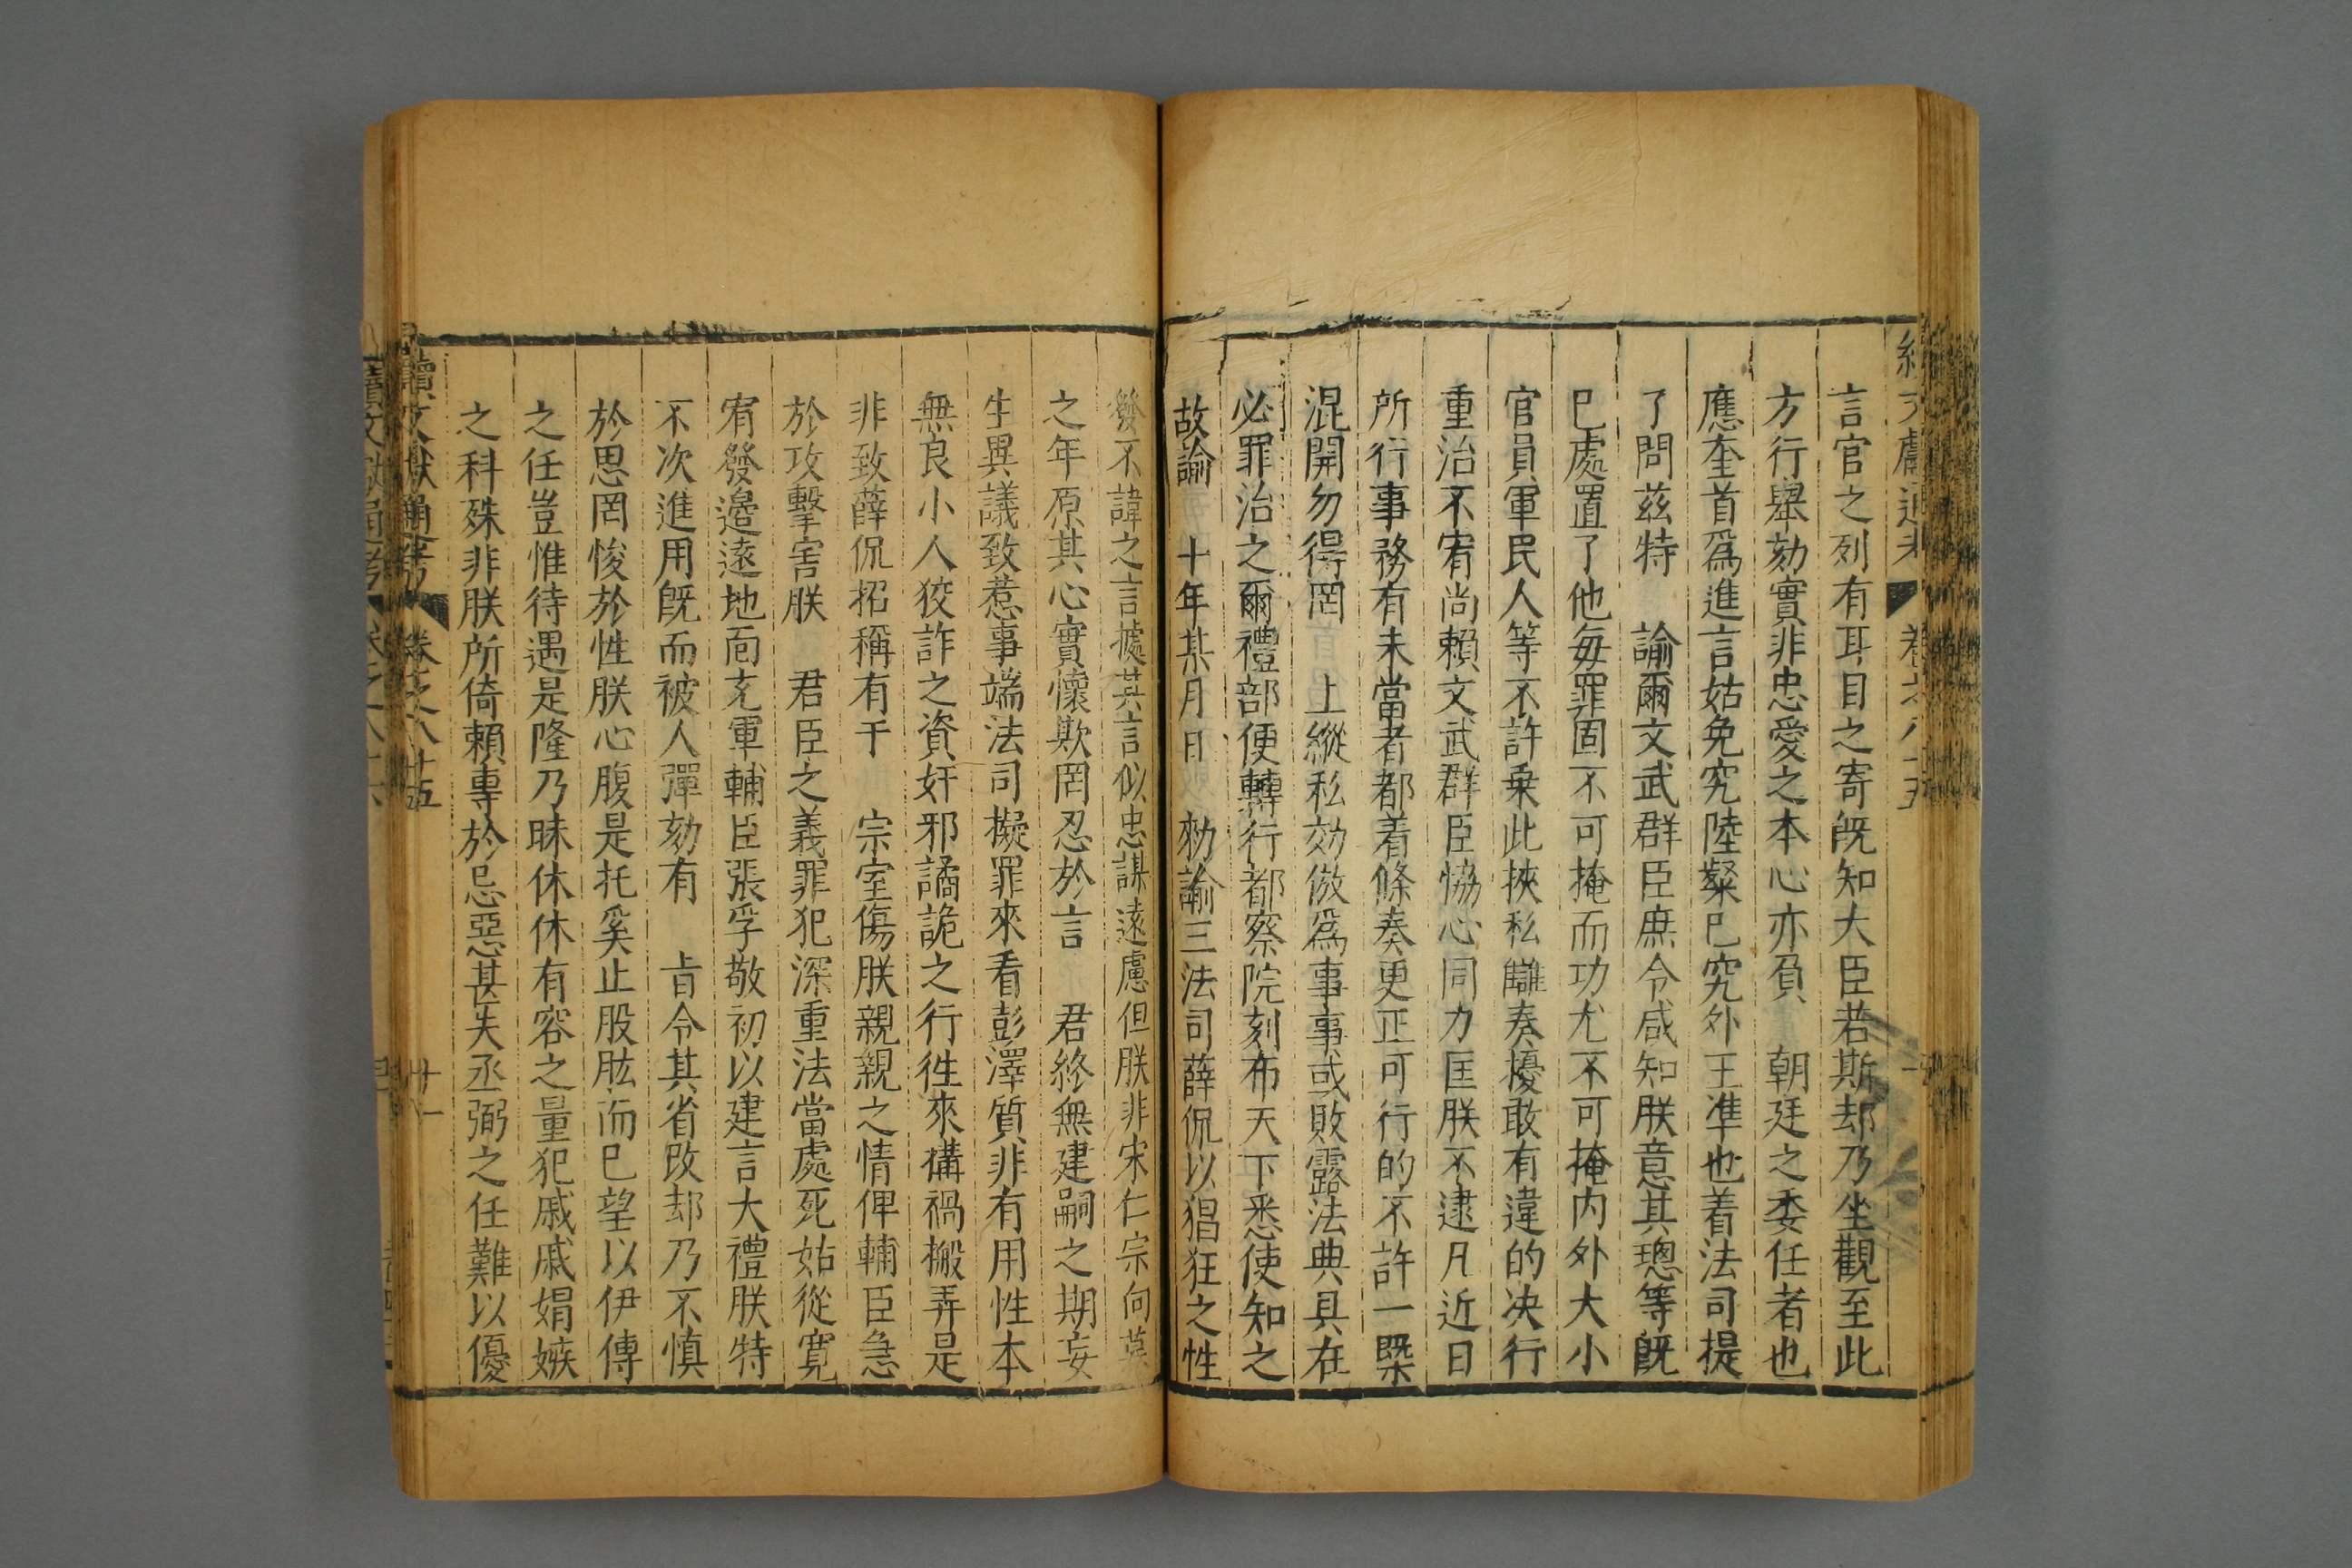 言官之列有耳目之寄旣知大臣若斯却乃坐觀至此
方行舉劾實非忠愛之本心亦負 朝廷之委任者也
應奎首爲進言姑免究陸粲已究外王準也着法司提
了問茲特 諭爾文武群臣庶令咸知朕意其璁等旣
已處置了他每罪固不可掩而功尤不可掩内外大小
官員軍民人等不許乗此挾私讎奏擾敢有違的决行
重治不宥尚賴文武群臣恊心同力匡朕不逮凡近日
所行事務有未當者都着條奏更正可行的不許一槩
混開勿得罔 上縱私効倣爲事事或敗露法典具在
必罪治之爾禮部便轉行都察院刻布天下悉使知之
故諭 十年某月日 勑諭三法司薛侃以猖狂之性
發不諱之言據其言似忠謀遠慮但朕非宋仁宗向暮
之年原其心實懷欺罔忍於言 君終無建嗣之期妄
生異議致惹事端法司擬罪來看彭澤質非有用性本
無良小人狡詐之資奸邪譎詭之行徃來搆禍搬弄是
非致薛侃招稱有干 宗室傷朕親親之情俾輔臣急
於攻擊害朕 君臣之義罪犯深重法當處死姑從寛
宥發邉遠地面充軍輔臣張孚敬初以建言大禮朕特
不次進用旣而被人彈劾有 㫖令其省改却乃不慎
於思罔悛於性朕心腹是托奚止股肱而已望以伊傳
之任豈惟待遇是隆乃昧休休有容之量犯戚戚娟嫉
之科殊非朕所倚賴專於忌惡甚失丞弼之任難以優
續文獻通考 卷之八十五 廿一